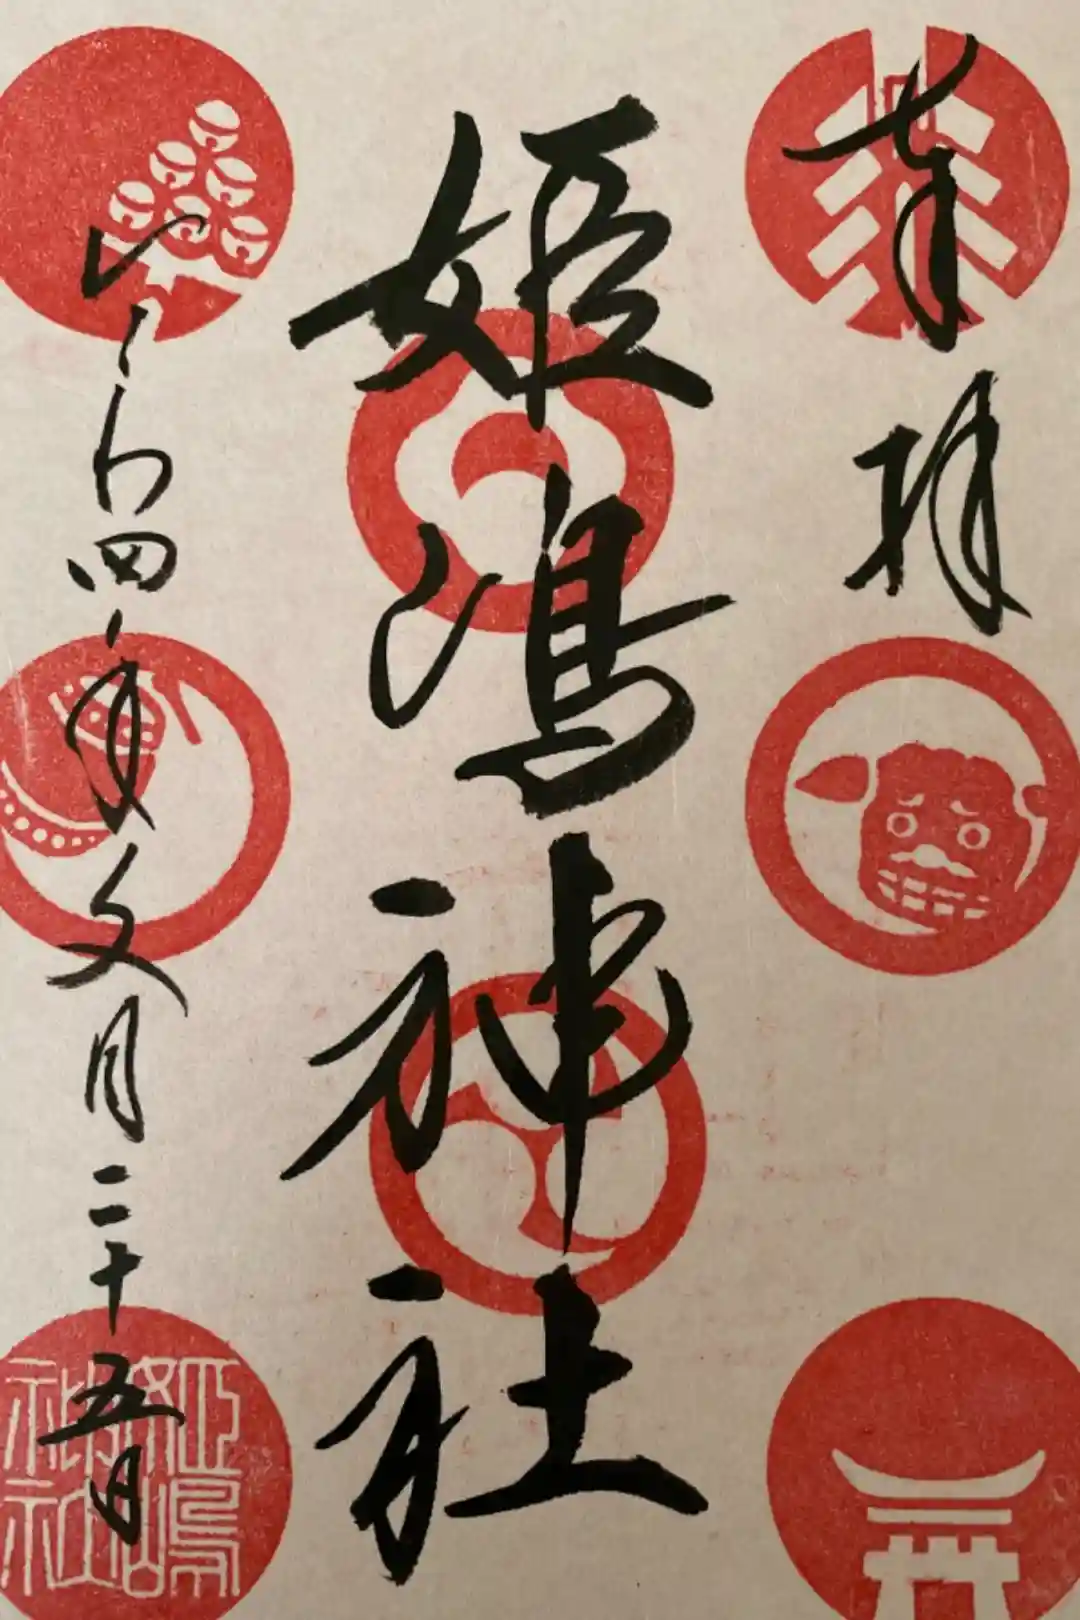 奉拝
姫嶋神社
令和四年文月二十五日
姫嶋
神社